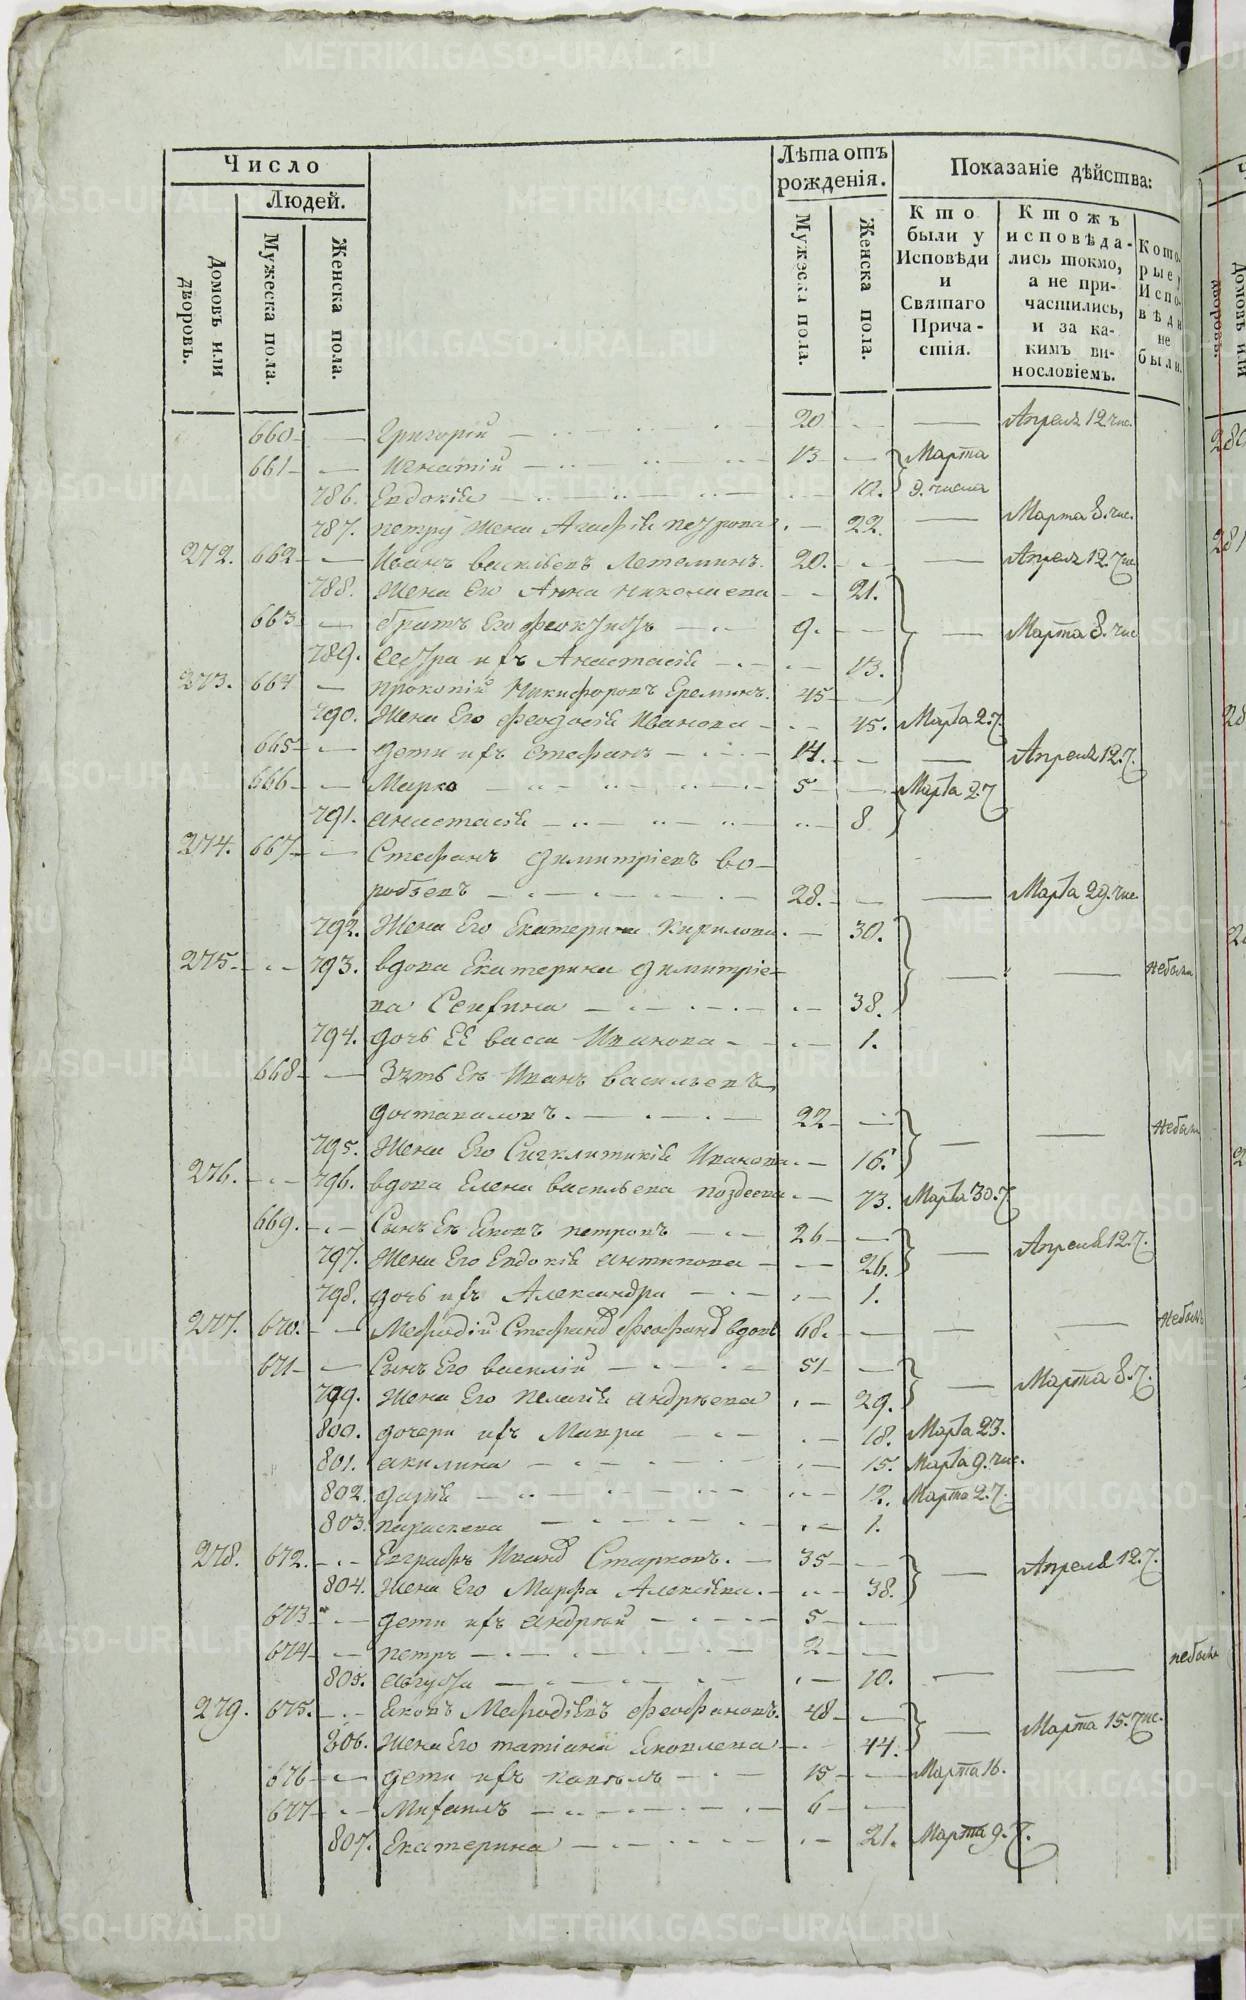 Число
Людей.
Домовъ или дворовъ.
Мужеска пола.
Женска пола.
Лѣта отъ рожденія.
Мужеска пола.
Женска пола.
Показаніе дѣйства:
Кто были у Исповѣди и Святаго Причастія.
Ктожъ исповѣдались токмо, а не причастились, и за какимъ винословіемъ.
Которые у Исповѣди не были.
660 — Григорій 20 — Апреля 12 чис.
661 — Игнатій 13 — Марта
786. Евдокія 12. 9. числа
787. петру жена Агафія петрова 22 — Марта 8. чис.
272. 662 — Иванъ васильевъ Летеминъ. 20. — Апреля 12. чис
788. жена Его Анна николаева 21.
663 — братъ Его феоктистъ 9. — Марта 8. чис
789. сестра ихъ Анастасія 13.
273. 664 — прокопій Никифоровъ Ереминъ. 45
790. Жена Его феодосія Иванова 45. Марта 27
665 — дети ихъ стефанъ 14. — Апреля 12. ч.
666 — Марко 5 — Марта 27
791. анастасія 8
274. 667 — Стефанъ димитріевъ во-
робьевъ 28. — Марта 29. чис
792. Жена Его Екатерина Кирилова 30.
275 793. вдова Екатерина димитріе-
ва 38. — — небыла
794. дочь ЕЕ васса Иванова 1.
668 — Зять Ея Иванъ васильевъ
достоваловъ. 22 — — небыли
795. Жена Его Сигклитикія Иванова 16.
276. 796. вдова Елена васильева поздеева 73. Марта 30. ч
669. Сынъ Ея яковъ петровъ 26 — Апреля 12. ч.
797. Жена Его Евдокія антипова 26.
798. дочь ихъ Александра 1.
277. 670. — Мефодій Стефановъ феофановъ вдовъ 68. — — Небылъ
671 — Сынъ Его василій 51 — Марта 8. ч.
799. жена Его пелагія андрѣева 29.
800. дочери ихъ Мавра 18. Марта 23.
801. акилина 15. Марта 9. чис.
802. дарія 12. Марта 2. ч.
803. параскева 1.
278. 672. Евграфъ Ивановъ Старковъ. 35 — Апреля 12. ч.
804. жена Его Марфа Алексѣева. 38.
673 — дети ихъ андрѣй 5
674 — петръ 2 — — небыли
805. августа 10.
279. 675. яковъ Мефодіевъ феофановъ. 48 — Марта 15. чис.
806. жена Его татіана яковлева 44.
676 — дети ихъ павелъ 15 — Марта 16.
677 — Михаилъ 6
807. Екатерина 21. Марта 9. ч.
METRIKI.GASO-URAL.RU